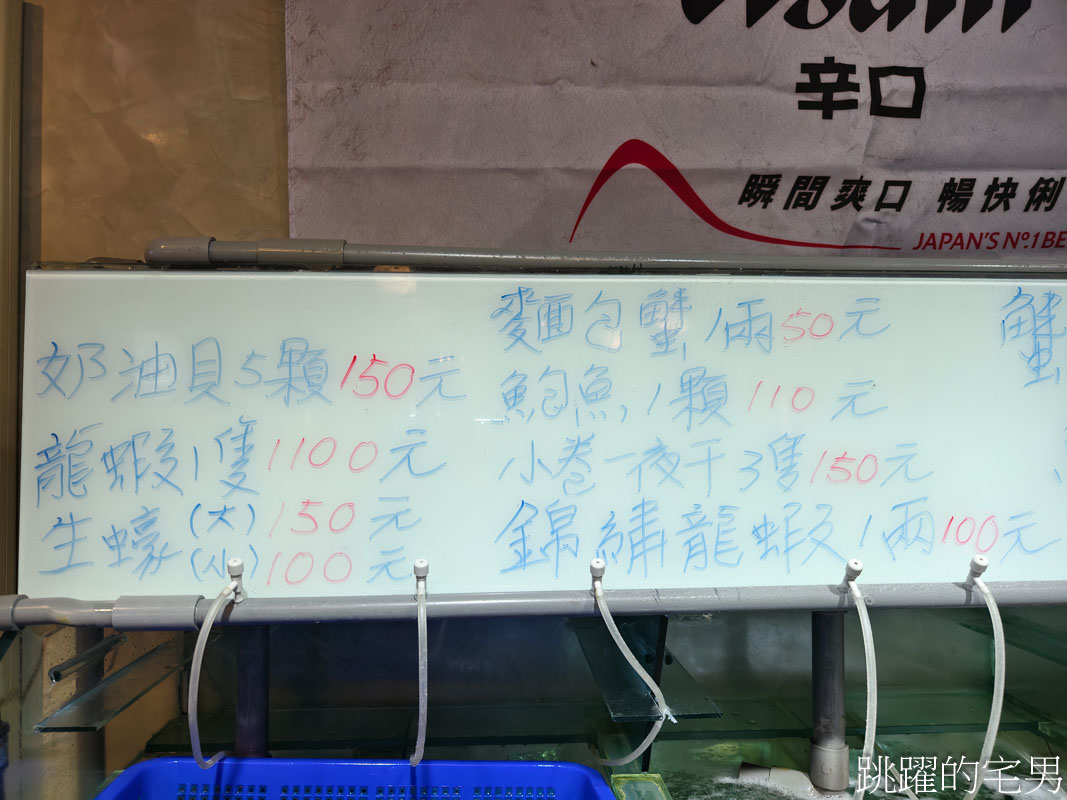 辛口
瞬間爽口 暢快俐
JAPAN'S Nº.1 BE
奶油貝5顆150元
龍蝦1隻1100元
生蠔(大)150元
(小)100元
麵包蟹1兩50元
鮑魚1顆110元
小卷一夜干3隻150元
錦繡龍蝦1兩100元
蟹
跳躍的宅男